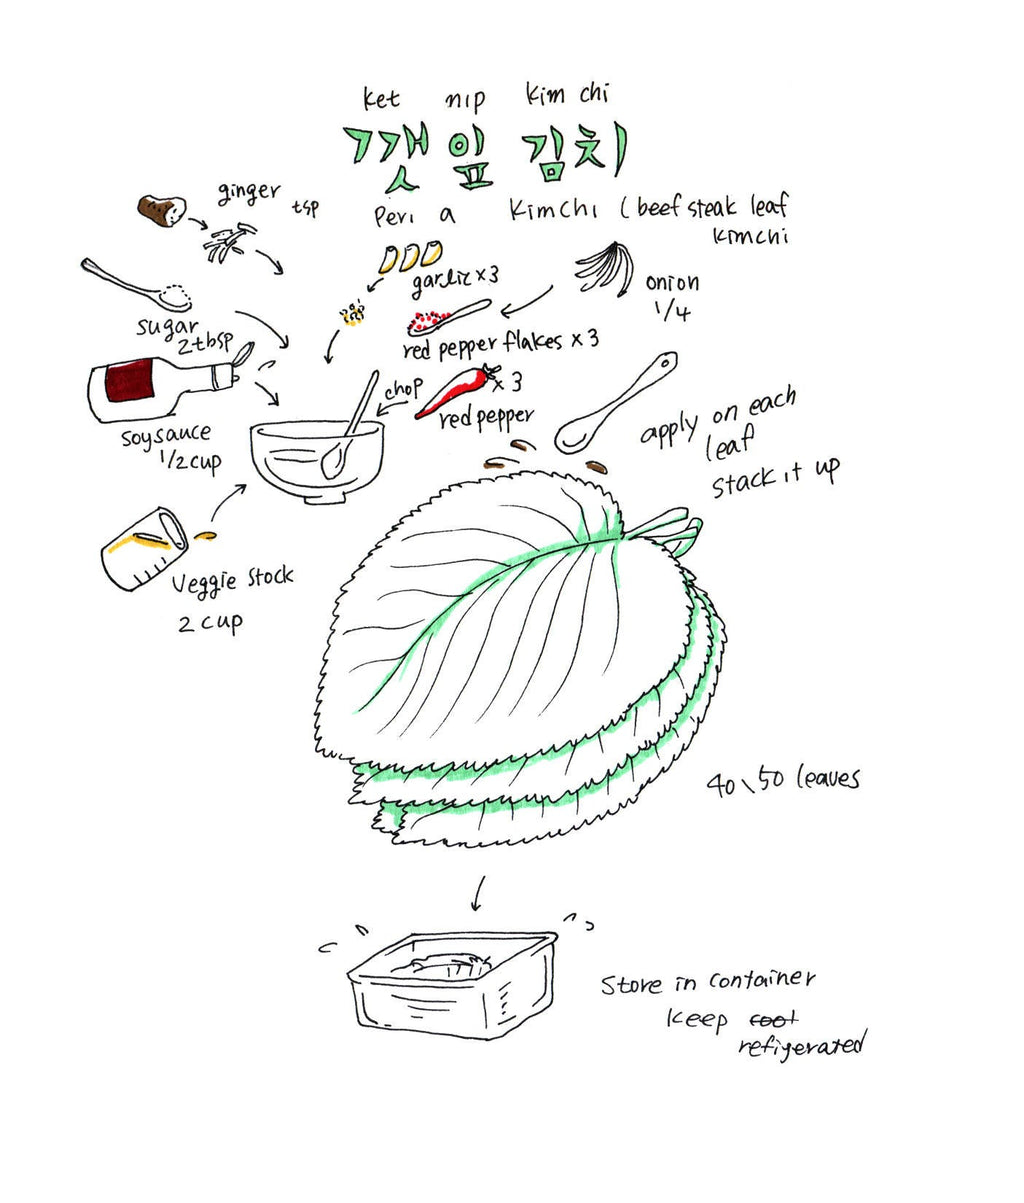 ket nip kim chi
깻잎 김치
peri a kimchi (beef steak leaf
kimchi
ginger
tsp
garlic x3
onion
1/4
sugar
2tbsp
red pepper flakes x 3
chop
x 3
red pepper
soysauce
1/2 cup
apply on each
leaf
stack it up
Veggie stock
2 cup
40\50 leaves
Store in container
keep
refigerated